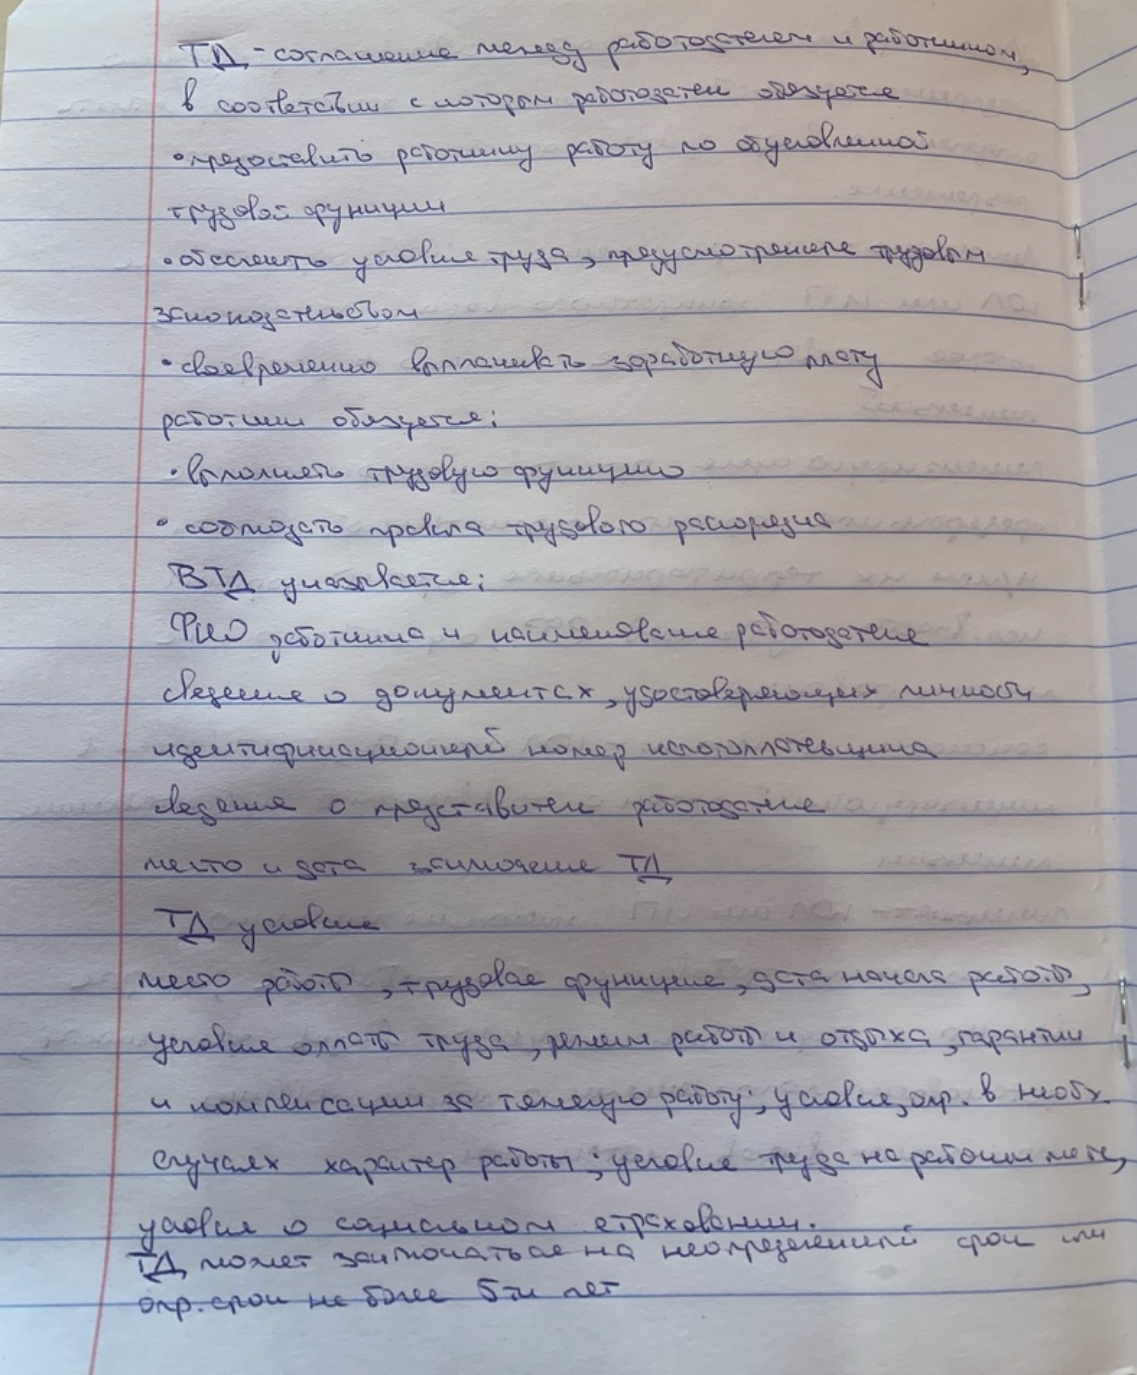 ТД - соглашение между работодателем и работником,
в соответствии с которым работодатель обязуется
• предоставить работнику работу по обусловленной
трудовой функции
• обеспечить условия труда, предусмотренные трудовым
законодательством
• своевременно выплачивать заработную плату
работник обязуется:
• выполнять трудовую функцию
• соблюдать правила трудового распорядка
В ТД указывается:
ФИО работника и наименование работодателя
сведения о документах, удостоверяющих личность
идентификационный номер налогоплательщика
сведения о представителе работодателя
место и дата заключения ТД
ТД условия
место работы, трудовая функция, дата начала работы,
условия оплаты труда, режим работы и отдыха, гарантии
и компенсации за тяжелую работу; условия, опр. в необх.
случаях характер работы; условия труда на рабочем месте,
условия о социальном страховании.
ТД может заключаться на неопределенный срок или
опр. срок не более 5ти лет